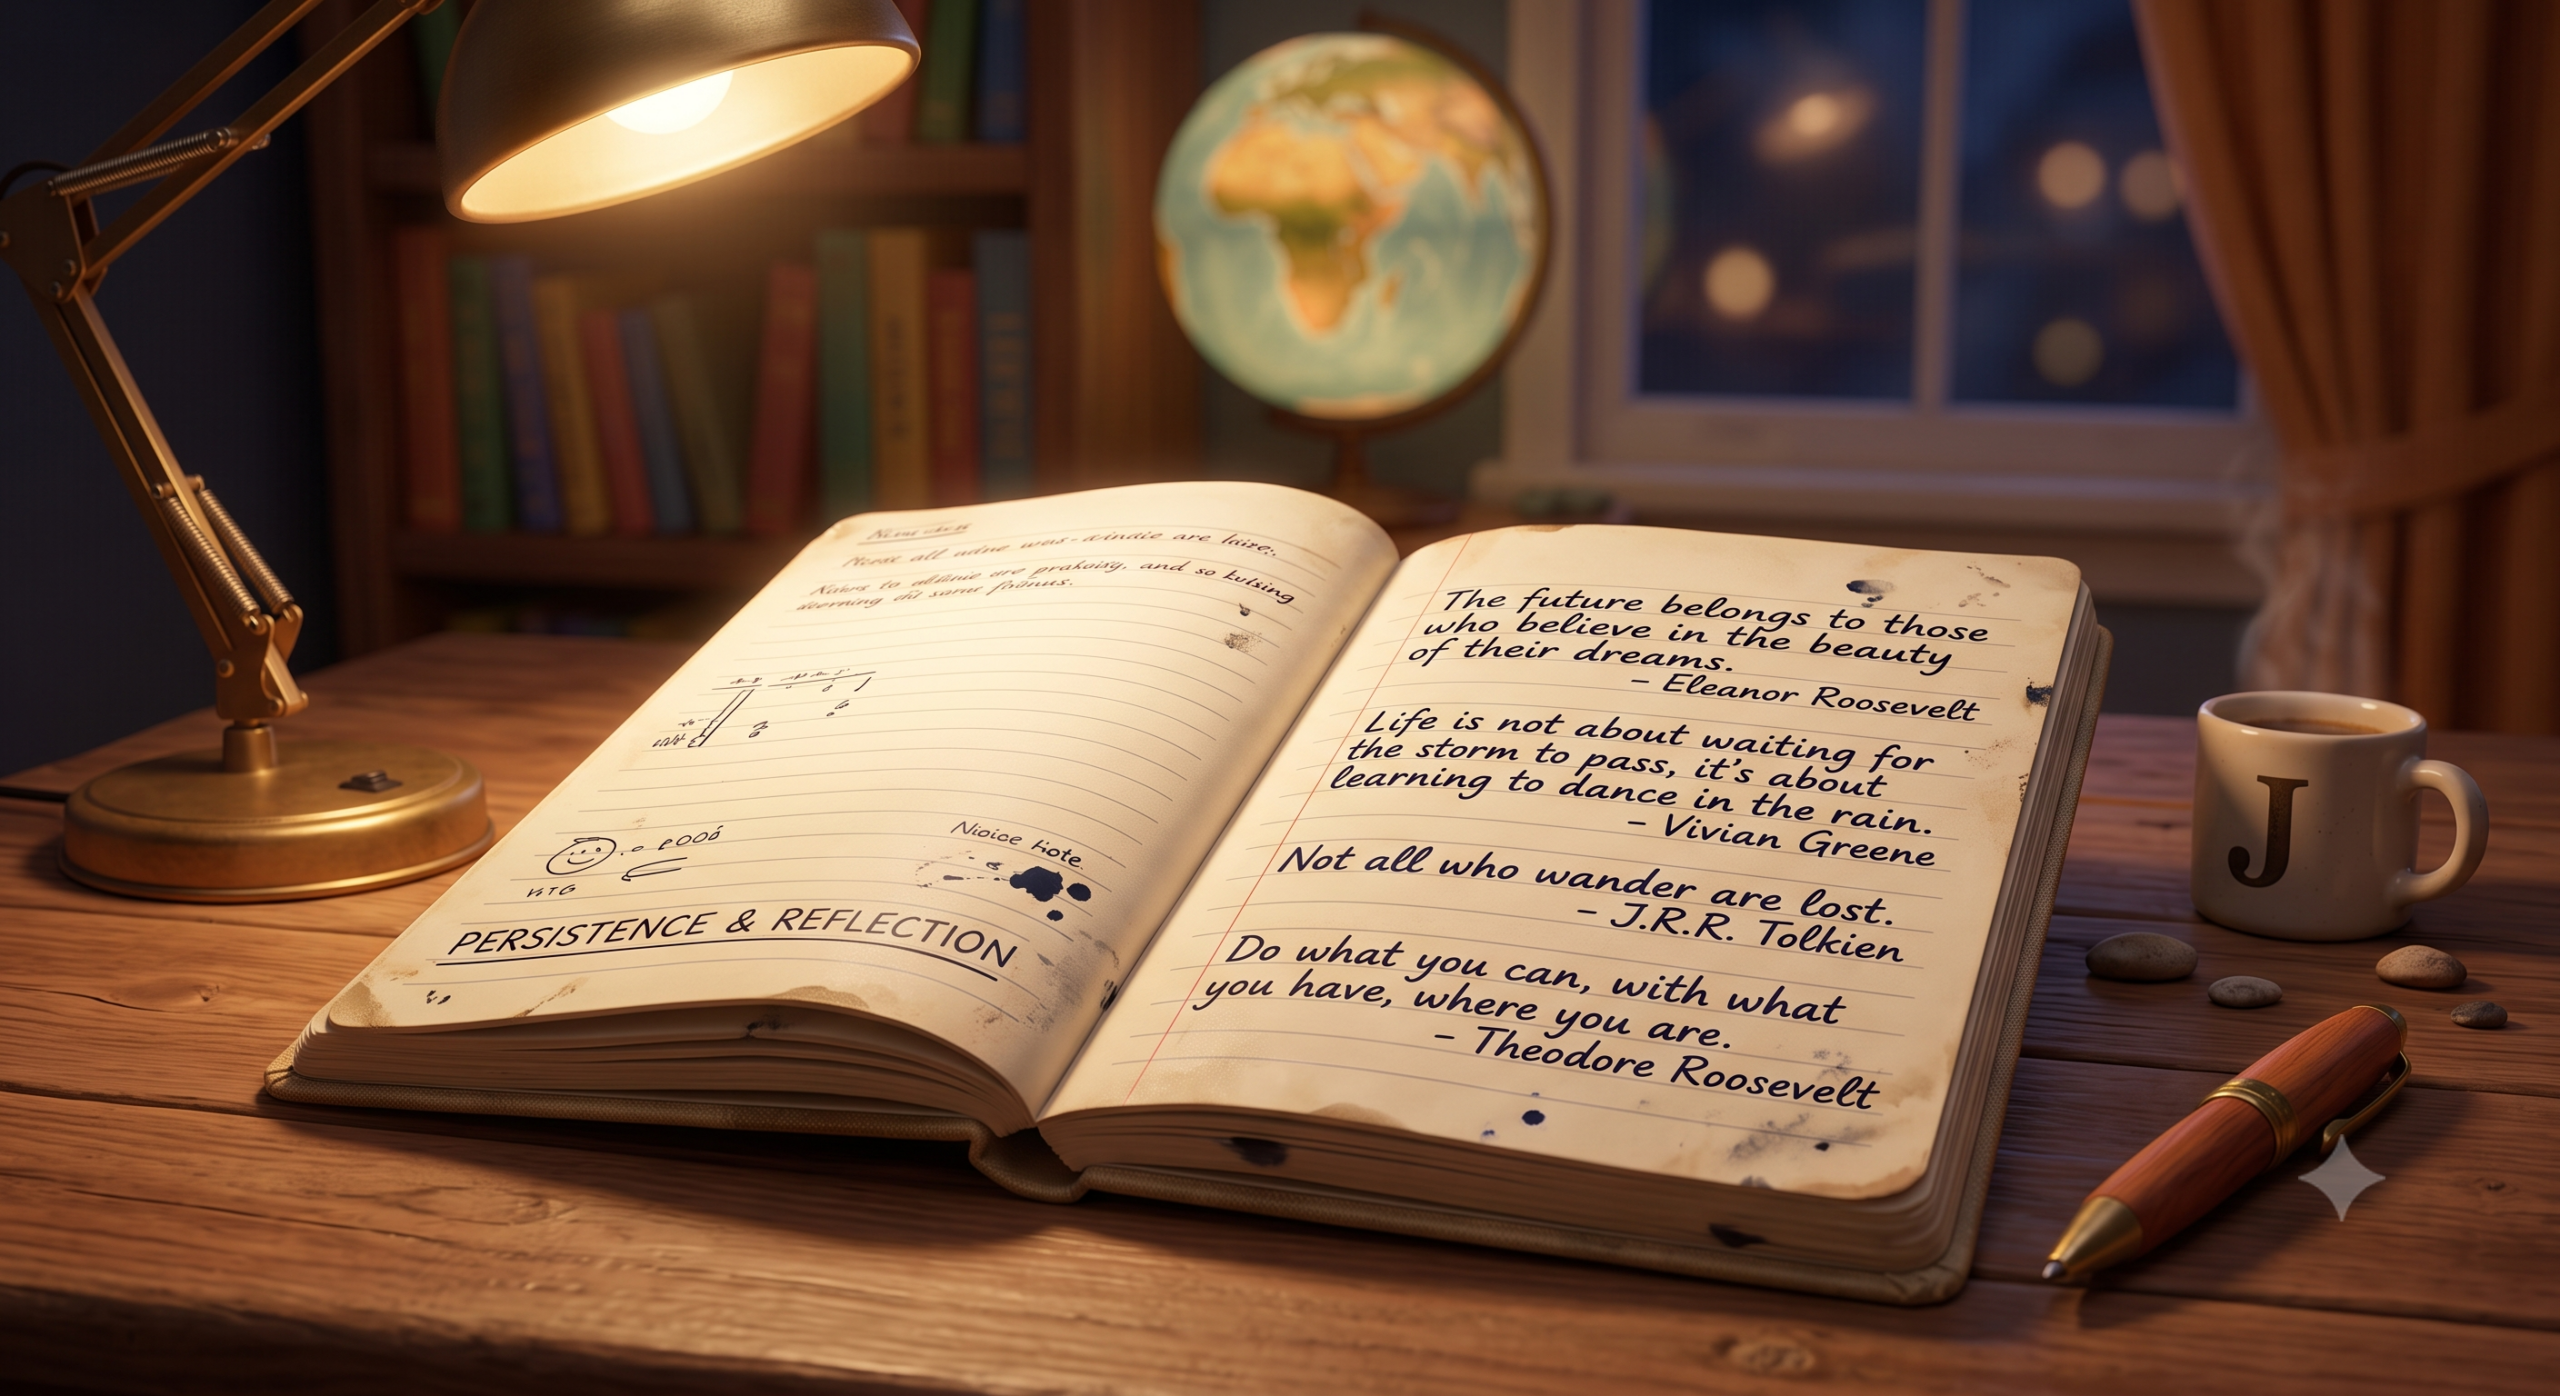 all are
to are and so
PERSISTENCE & REFLECTION
The future belongs to those
who believe in the beauty
of their dreams.
– Eleanor Roosevelt
Life is not about waiting for
the storm to pass, it's about
learning to dance in the rain.
– Vivian Greene
Not all who wander are lost.
– J.R.R. Tolkien
Do what you can, with what
you have, where you are.
– Theodore Roosevelt
J